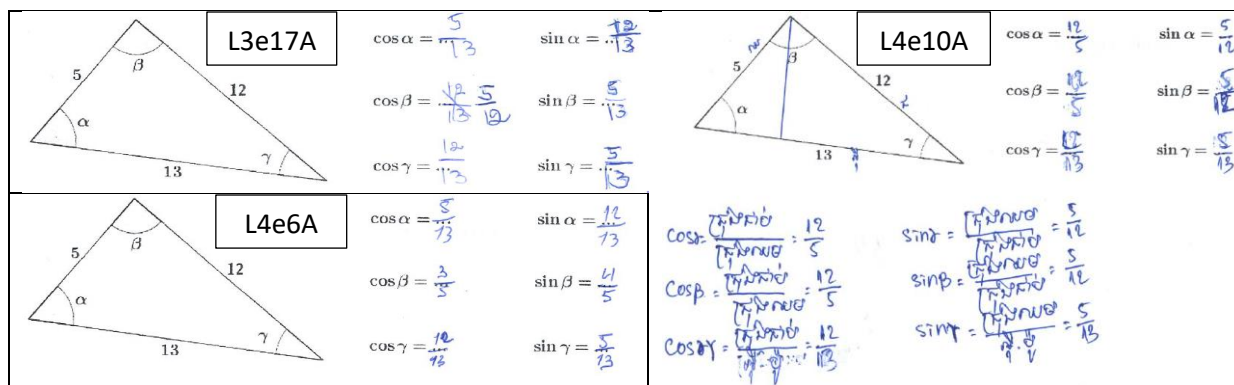 L3e17A
5
β
12
α
γ
13
cos α = 5/13
sin α = 12/13
cos β = 12/13 5/12
sin β = 5/13
cos γ = 12/13
sin γ = 5/13
L4e10A
5
β
12
α
γ
13
cos α = 12/5
sin α = 5/12
cos β = 12/5
sin β = 5/12
cos γ = 12/13
sin γ = 5/13
L4e6A
5
β
12
α
γ
13
cos α = 5/13
sin α = 12/13
cos β = 3/5
sin β = 4/5
cos γ = 12/13
sin γ = 5/13
cosα = ជ្រុងជាប់/ជ្រុងឈម = 12/5
sinα = ជ្រុងឈម/ជ្រុងជាប់ = 5/12
cosβ = ជ្រុងជាប់/ជ្រុងឈម = 12/5
sinβ = ជ្រុងឈម/ជ្រុងជាប់ = 5/12
cosγ = ជ្រុងជាប់/ = 12/13
sinγ = ជ្រុងឈម/ = 5/13